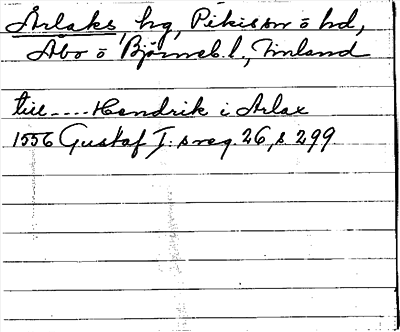 Årlaks, hg, Pikis sn o hd,
Åbo o Björneb. l., Finland
till .... Hendrik i Arlax
1556 Gustaf I:s reg. 26, s. 299.